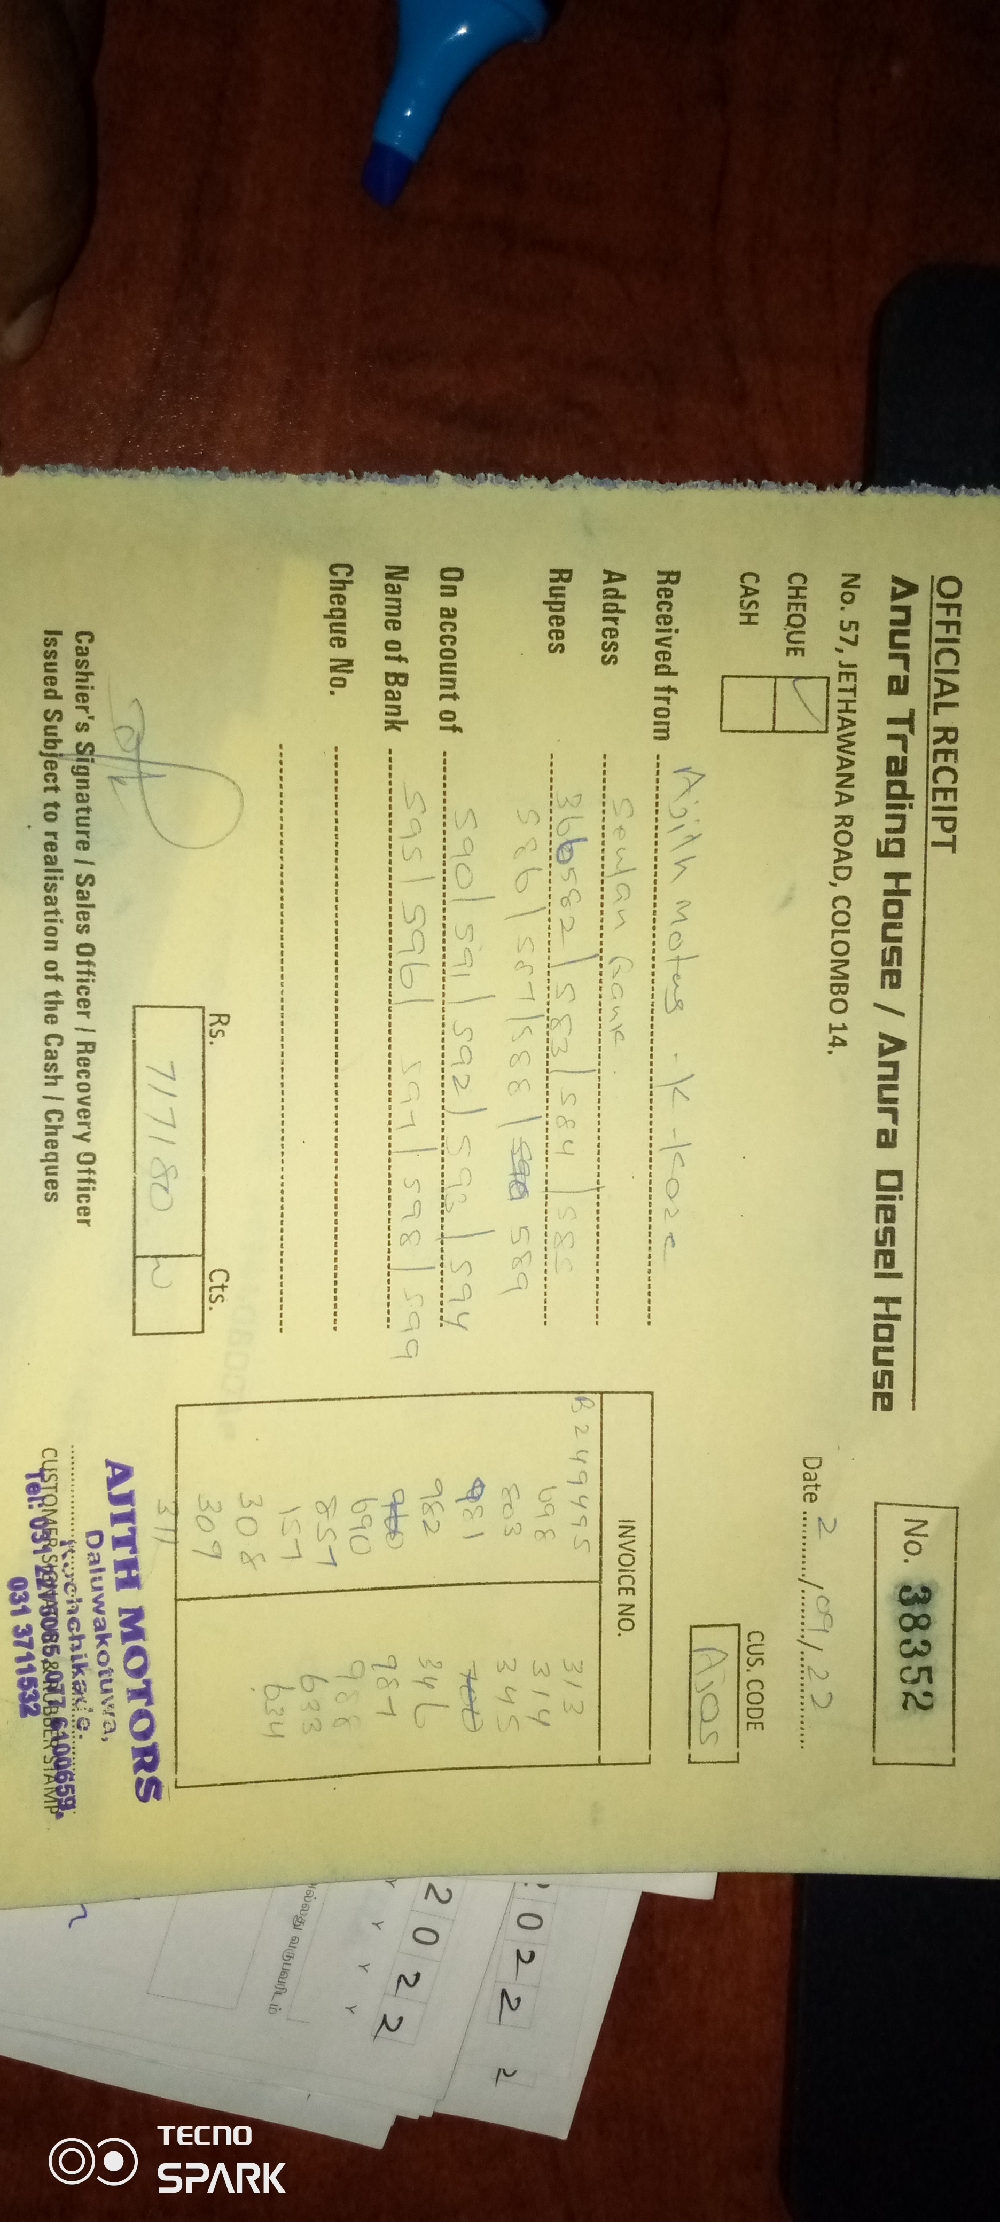 OFFICIAL RECEIPT
Anura Trading House / Anura Diesel House
No. 57, JETHAWANA ROAD, COLOMBO 14.
No. 38352
Date 2/09/22
CHEQUE
CASH
CUS. CODE
AJ05
Received from Ajith Motors - K - Koze
Address Seylan Bank
Rupees 366582 / 583 / 584 / 585
586 / 587 / 588 / 589
On account of 590 / 591 / 592 / 593 / 594
Name of Bank 595 / 596 / 597 / 598 / 599
Cheque No.
INVOICE NO.
B249495 313
698 314
803 345
981
982 346
690 987
857 988
157 633
308 634
309
311
Rs. Cts.
717180
Cashier's Signature / Sales Officer / Recovery Officer
Issued Subject to realisation of the Cash / Cheques
AJITH MOTORS
Daluwakotuwa,
Kochchikade.
CUSTOMER SIGNATURE & RUBBER STAMP
Tel: 031 2276085, 077 6100659,
031 3711532
2022
2022
2
TECNO
SPARK